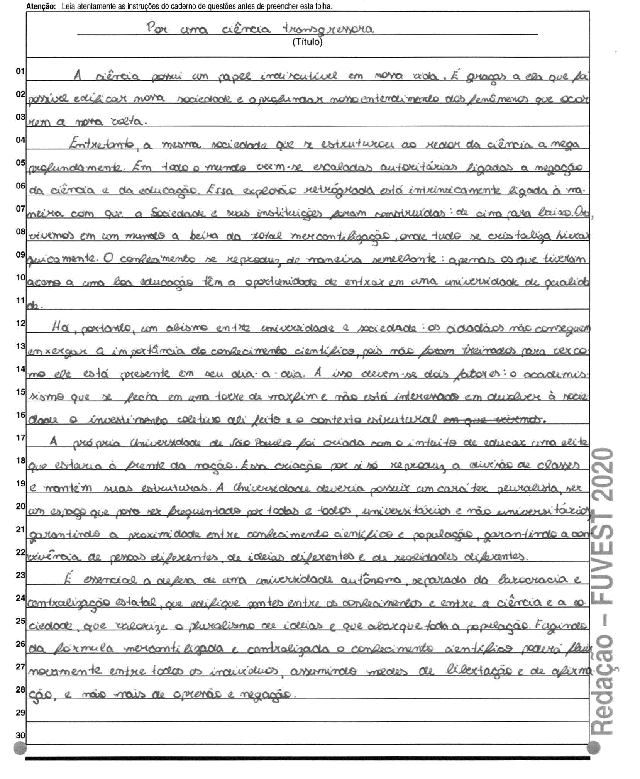 Atenção: Leia atentamente as instruções do caderno de questões antes de preencher esta folha.
Por uma ciência transgressora
(Título)
01 A ciência possui um papel indiscutível em nossa vida. É graças a ela que foi
02 possível edificar nossa sociedade e aprofundar nosso entendimento dos fenômenos que ocor
03 rem a nossa volta.
04 Entretanto, a mesma sociedade que se estruturou ao redor da ciência a nega
05 profundamente. Em todo o mundo veem-se escaladas autoritárias ligadas a negação
06 da ciência e da educação. Essa explosão retrógrada está intrinsicamente ligada à ma-
07 neira com que a Sociedade e suas instituições foram construídas: de cima para baixo. Ora,
08 vivemos em um mundo a beira da total mercantilização, onde tudo se cristaliza hierar
09 quicamente. O conhecimento se reproduz de maneira semelhante: apenas os que tiveram
10 acesso a uma boa educação têm a oportunidade de entrar em uma universidade de qualida
11 de.
12 Há, portanto, um abismo entre universidade e sociedade: os cidadãos não conseguem
13 enxergar a importância do conhecimento científico, pois não foram treinados para ver co
14 mo ele está presente em seu dia-a-dia. A isso devem-se dois fatores: o academis-
15 sismo que se fecha em uma torre de marfim e não está interessado em devolver à socie
16 dade o investimento coletivo ali feito e o contexto estrutural em que vivemos.
17 A própria Universidade de São Paulo foi criada com o intuito de educar uma elite
18 que estaria à frente da nação. Essa criação por si só reproduz a divisão de classes
19 e mantém suas estruturas. A Universidade deveria possuir um caráter pluralista, ser
20 um espaço que possa ser frequentado por todas e todos, universitários e não universitários
21 garantindo a proximidade entre conhecimento científico e população, garantindo a con
22 vivência de pessoas diferentes, de ideias diferentes e de realidades diferentes.
23 É essencial a defesa de uma universidade autônoma, separada da burocracia e
24 centralização estatal, que edifique pontes entre os conhecimentos e entre a ciência e a so
25 ciedade, que valorize o pluralismo de ideias e que abarque toda a população. Fugindo
26 da fórmula mercantilizada e centralizada o conhecimento científico poderá fluir
27 novamente entre todos os indivíduos, assumindo moldes de libertação e de afirma
28 ção, e não mais de opressão e negação.
29
30
Redação – FUVEST 2020